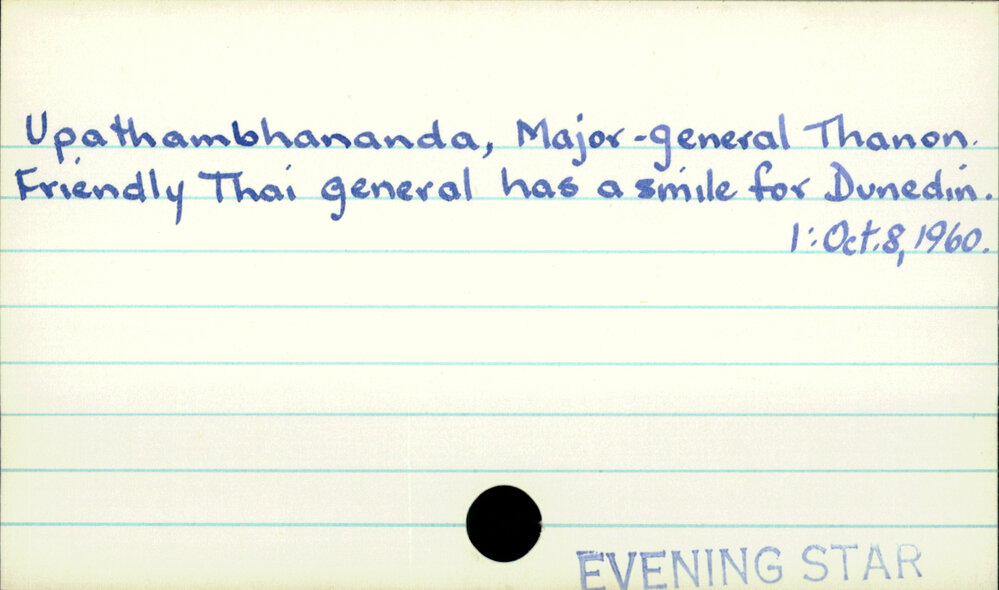 Upathambhananda, Major-general Thanon.
Friendly Thai general has a smile for Dunedin.
1: Oct. 8, 1960.
EVENING STAR